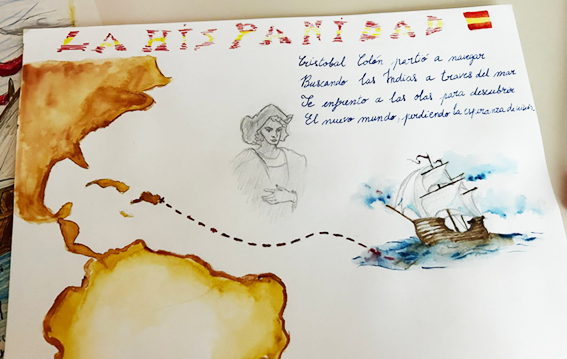 LA HISPANIDAD
Cristobal Colón partió a navegar
Buscando las Indias a traves del mar
Te enfrento a las olas para descubrir
El nuevo mundo, perdiendo la esperanza de vivir.